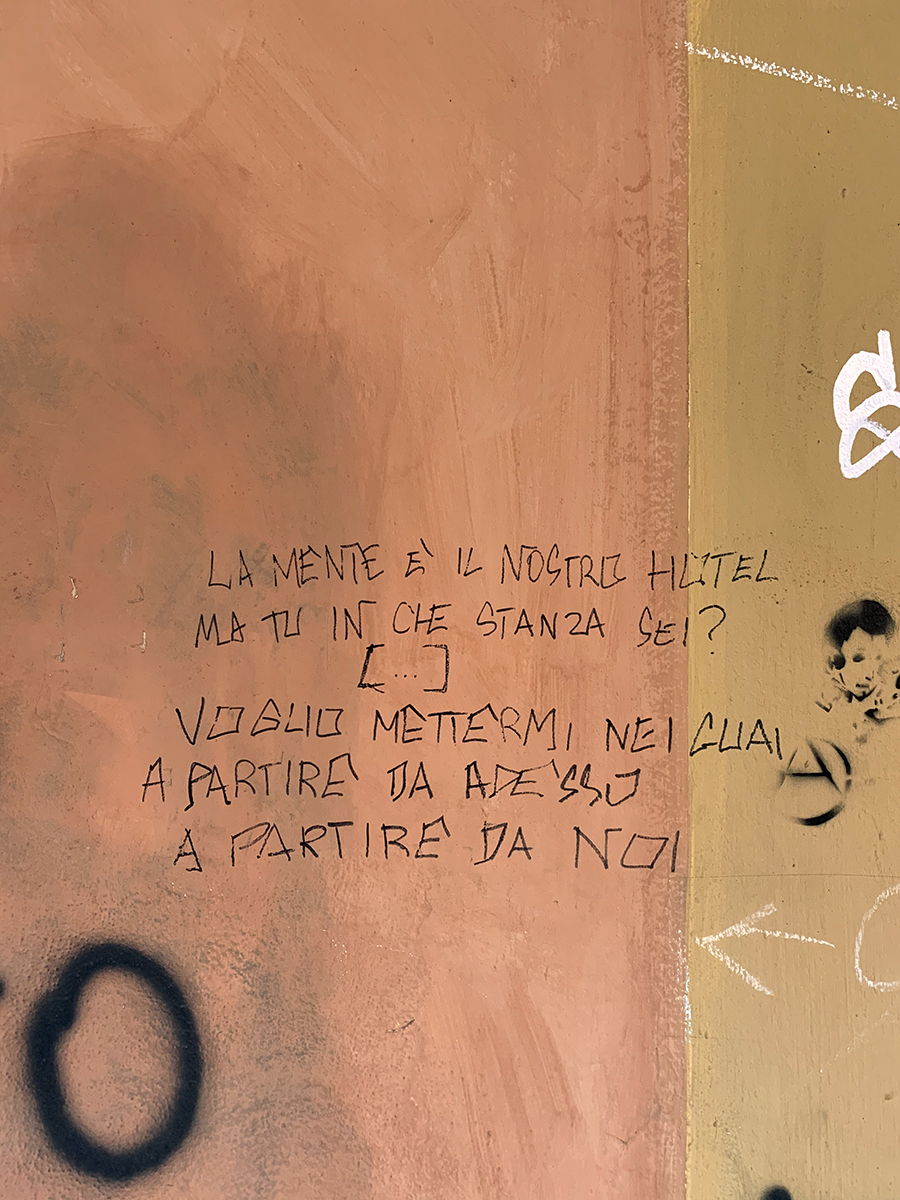 LA MENTE E' IL NOSTRO HOTEL
MA TU IN CHE STANZA SEI?
[...]
VOGLIO METTERMI NEI GUAI
A PARTIRE DA ADESSO
A PARTIRE DA NOI